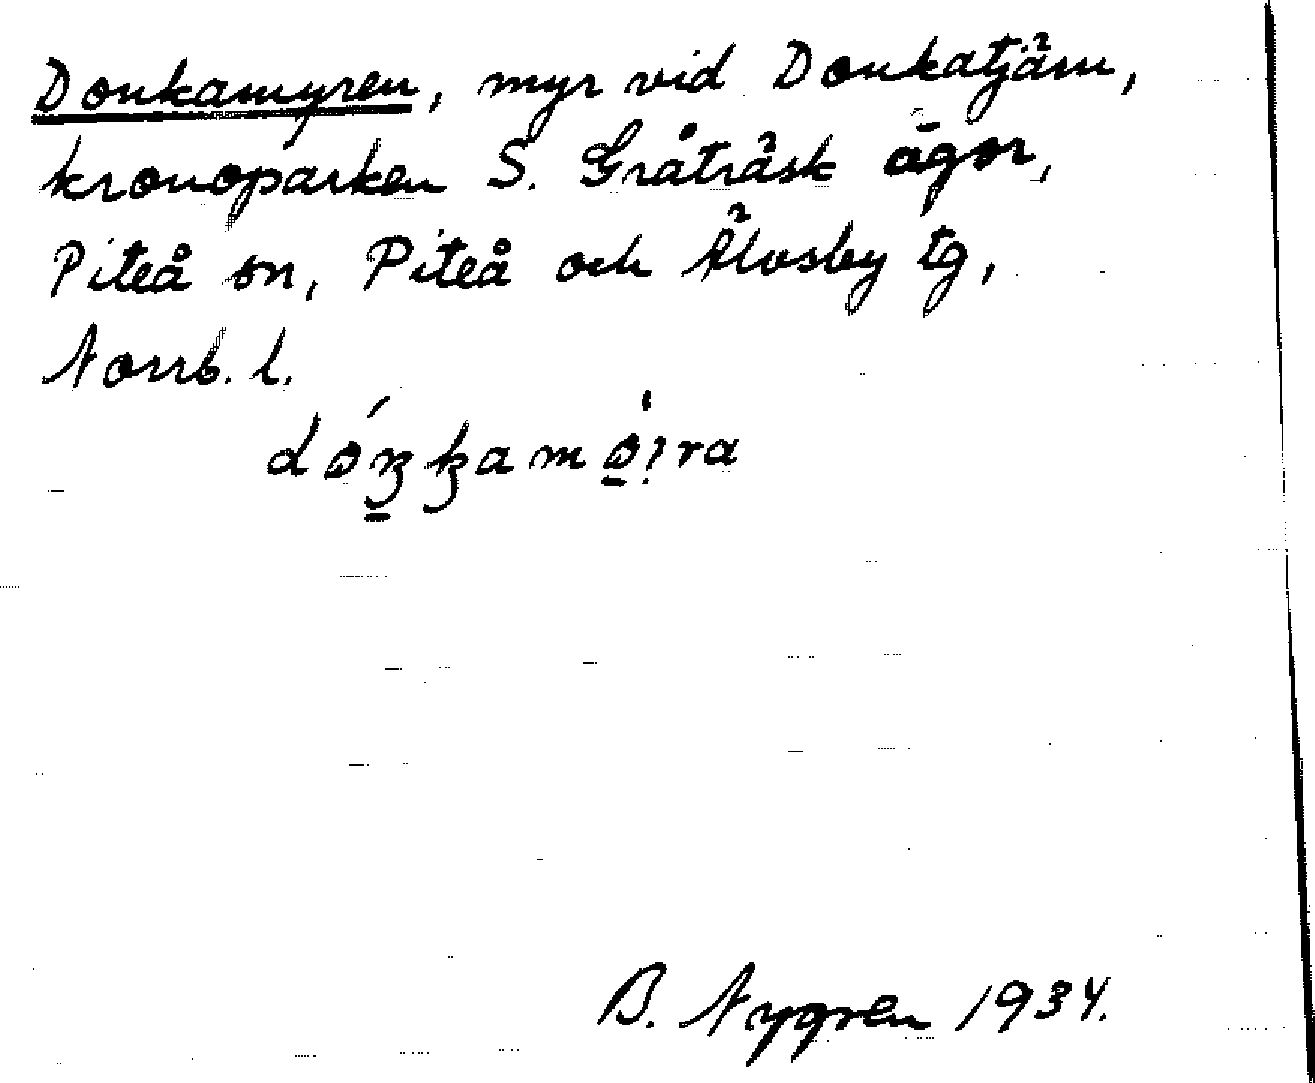 Donkamyren, myr vid Donkatjärn,
kronoparken S. Gråträsk ägor,
Piteå sn, Piteå och Älvsby tg,
Norrb. l.
B. Nygren 1934.